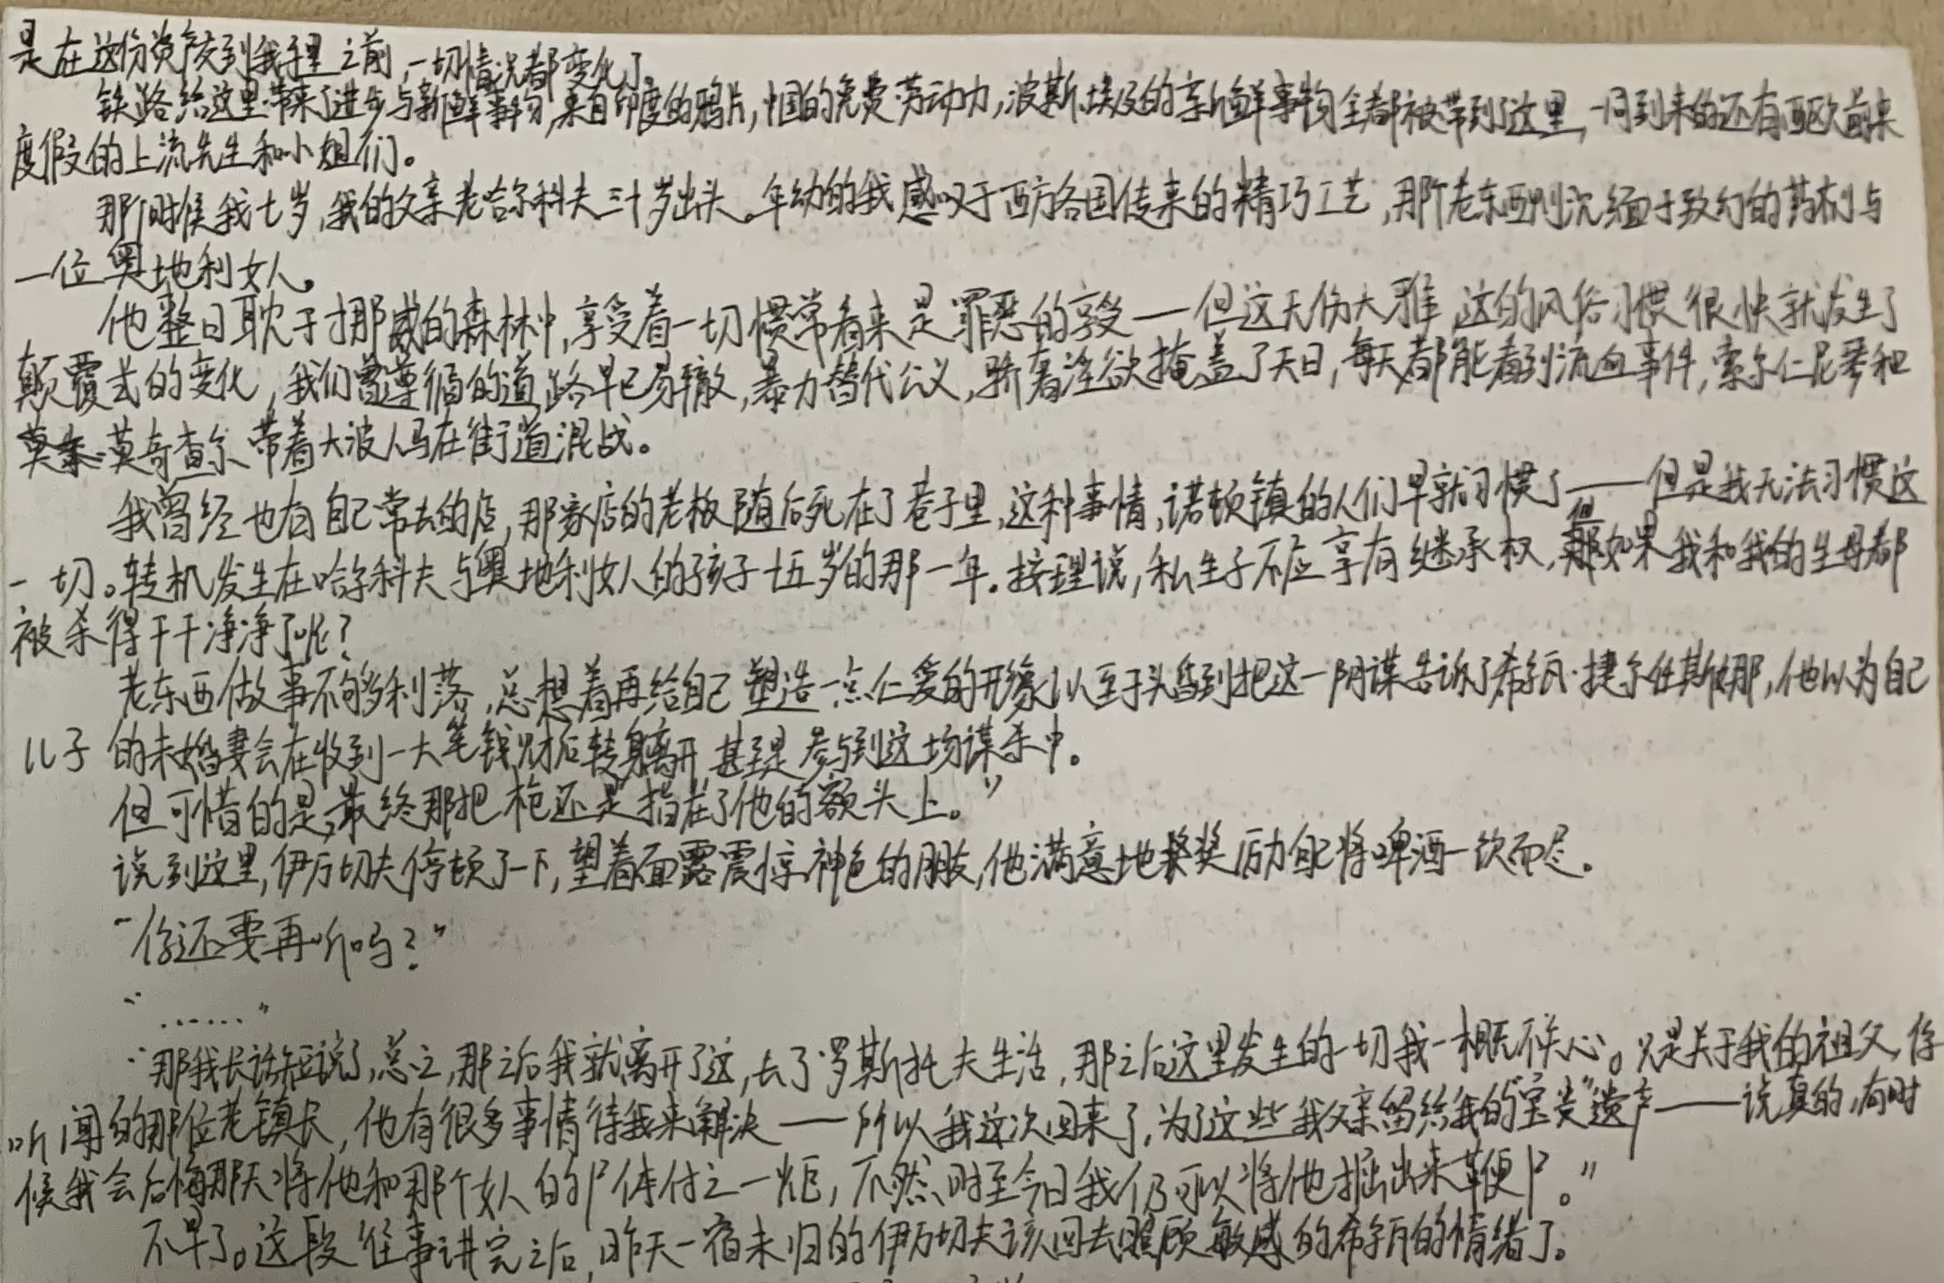 是在这份资产交到我手里之前,一切情况都变化了。
铁路给这里带来了进步与新鲜事物,来自印度的鸦片,中国的免费劳动力,波斯埃及的新鲜事物全都被带到了这里,一同到来的还有西欧前来
度假的上流先生和小姐们。
那个时候我七岁,我的父亲老哈尔科夫三十岁出头。年幼的我感叹于西方各国传来的精巧工艺,那个老东西则沉缅于致幻的药剂与
一位奥地利女人。
他整日耽于挪威的森林中,享受着一切惯常看来是罪恶的享受——但这无伤大雅,这的风俗习惯很快就发生了
颠覆式的变化,我们曾遵循的道路早已易辙,暴力替代公义,骄奢淫欲掩盖了天日,每天都能看到流血事件,索尔仁尼琴和
莫奇查尔带着大波人马在街道混战。
我曾经也有自己常去的店,那家店的老板随后死在了巷子里,这种事情,诺顿镇的人们早就习惯了——但是我无法习惯这
一切。转机发生在哈尔科夫与奥地利女人的孩子十五岁的那一年。按理说,私生子不应享有继承权,但如果我和我的生母都
被杀得干干净净了呢?
老东西做事不够利落,总想着再给自己塑造一点仁爱的形象以至于头昏到把这一阴谋告诉了希尔瓦·捷尔任斯娜,他以为自己
儿子的未婚妻会在收到一大笔钱财后转身离开,甚至是参与到这场谋杀中。
但可惜的是,最终那把枪还是指在了他的额头上。”
说到这里,伊万切夫停顿了一下,望着面露震惊神色的朋友,他满意地奖励自己将啤酒一饮而尽。
“你还要再听吗?”
“……”
“那我长话短说了,总之,那之后我就离开了这,去了罗斯托夫生活,那之后这里发生的一切我一概不关心。只是关于我的祖父,你
听闻的那位老镇长,他有很多事情待我来解决——所以我这次回来了,为了这些我父亲留给我的“宝贵”遗产——说真的,有时
候我会后悔那天将他和那个女人的尸体付之一炬,不然时至今日我仍可以将他掘出来鞭尸。”
不早了。这段往事讲完之后,昨天一宿未归的伊万切夫该回去照顾敏感的希尔瓦的情绪了。